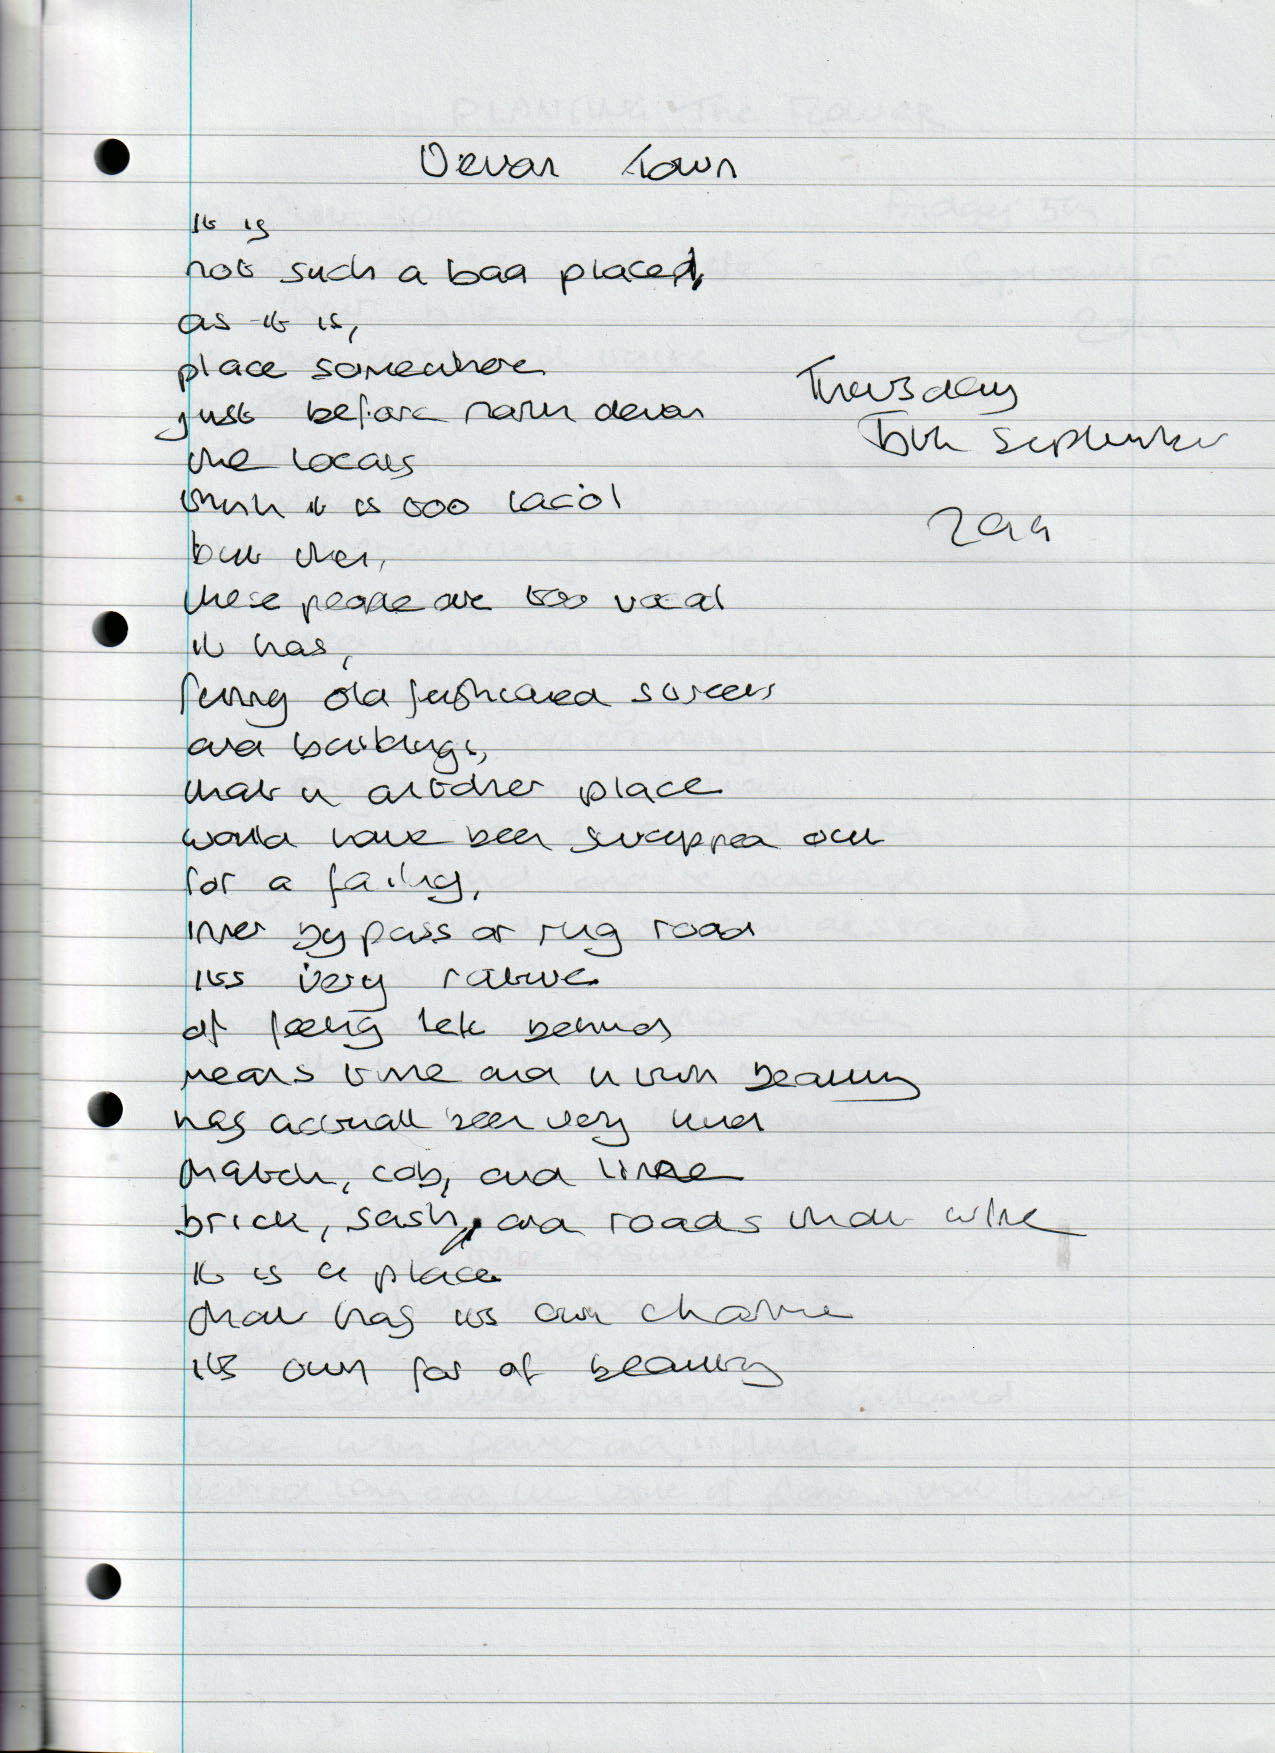 Devon Town
it is
not such a bad placed,
as it is,
place somewhere
just before north devon
Thursday
September
the locals
think it is too local
but then,
these people are too vocal
it has,
funny old fashioned streets
and buildings,
that in another place
would have been swapped out
for a failing,
inner bypass or ring road
its very nature
of feeling left behind
means time and in turn beauty
has actuall been very kind
thatch, cob, and lime
brick, sash, and roads that wine
it is a place
that has its own charme
its own for of beauty